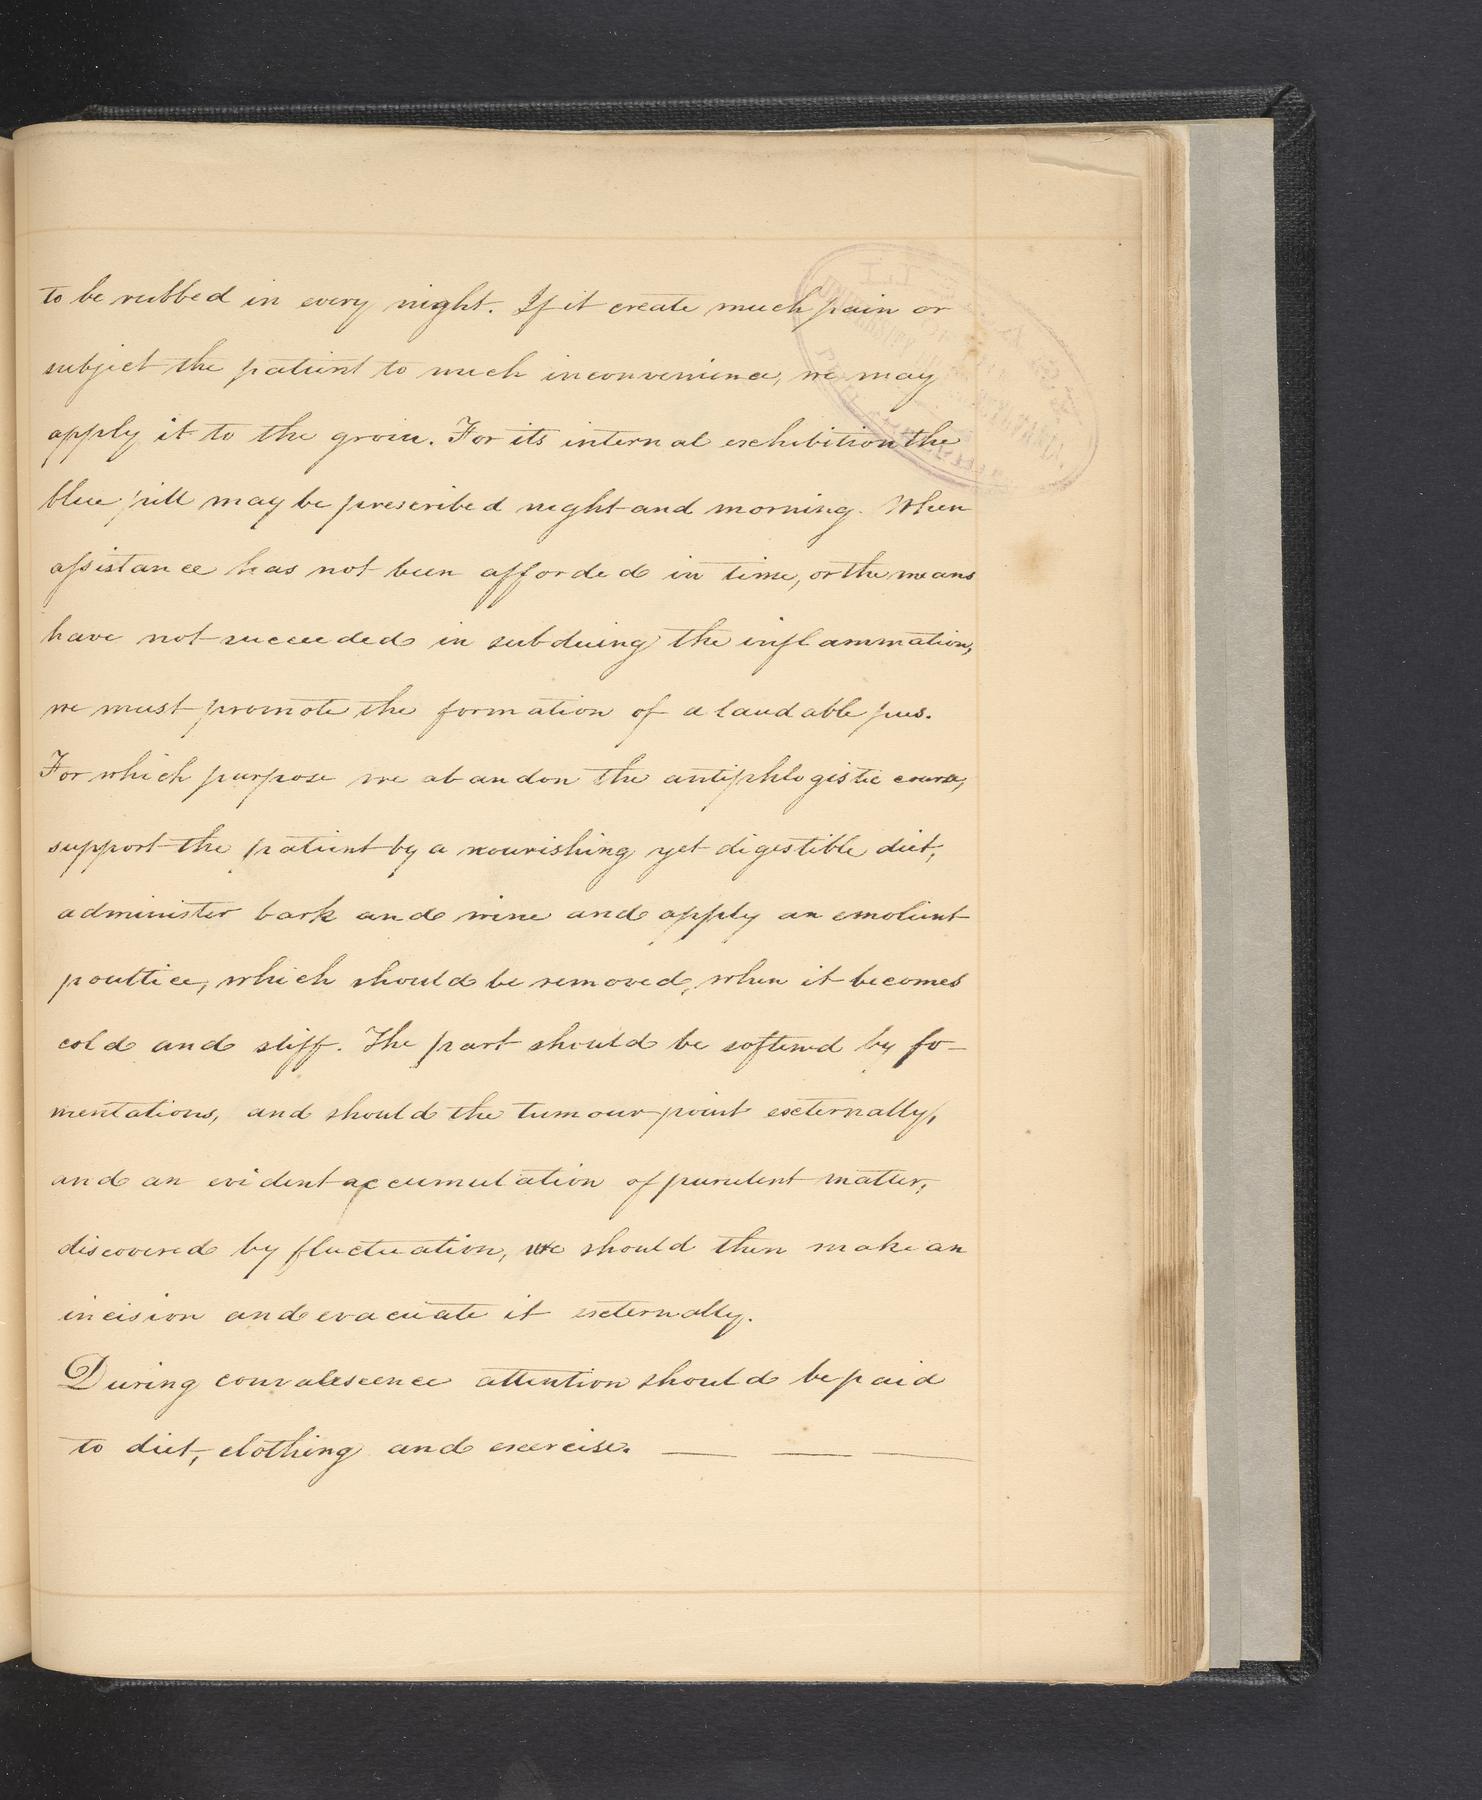 to be rubbed in every night. If it create much pain or
subject the patient to much inconvenience, we may
apply it to the groin. For its internal exhibition the
blue pill may be prescribed night and morning. When
assistance has not been afforded in time, or the means
have not succeeded in subduing the inflammation,
we must promote the formation of a laudable pus.
For which purpose we abandon the antiphlogistic course,
support the patient by a nourishing yet digestible diet,
administer bark and wine and apply an emolient
poultice, which should be removed, when it becomes
cold and stiff. The part should be softened by fo-
mentations, and should the tumour point externally,
and an evident accumulation of purulent matter,
discovered by fluctuation, we should then make an
incision and evacuate it externally.
During convalescence attention should be paid
to diet, clothing and exercise. — — —